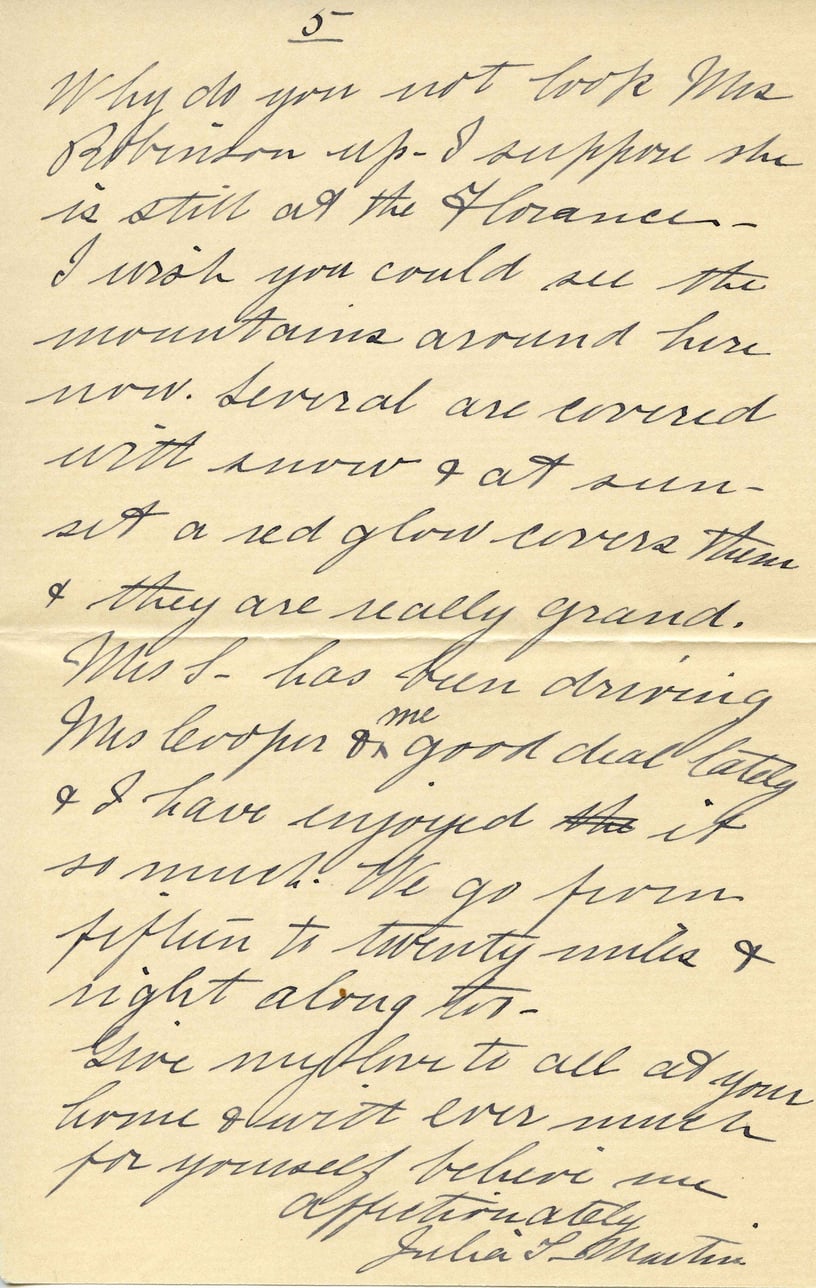 5
Why do you not look Mrs
Robinson up - I suppose she
is still at the Florance -
I wish you could see the
mountains around here
now. Several are covered
with snow & at sun-
set a red glow covers them
& they are really grand.
Mrs S- has been driving
Mrs Cooper & me good deal lately
& I have enjoyed the it
so much. We go from
fifteen to twenty miles &
right along too -
Give my love to all at your
home & with ever much
for yourself believe me
affectionately
Julia S. Martin